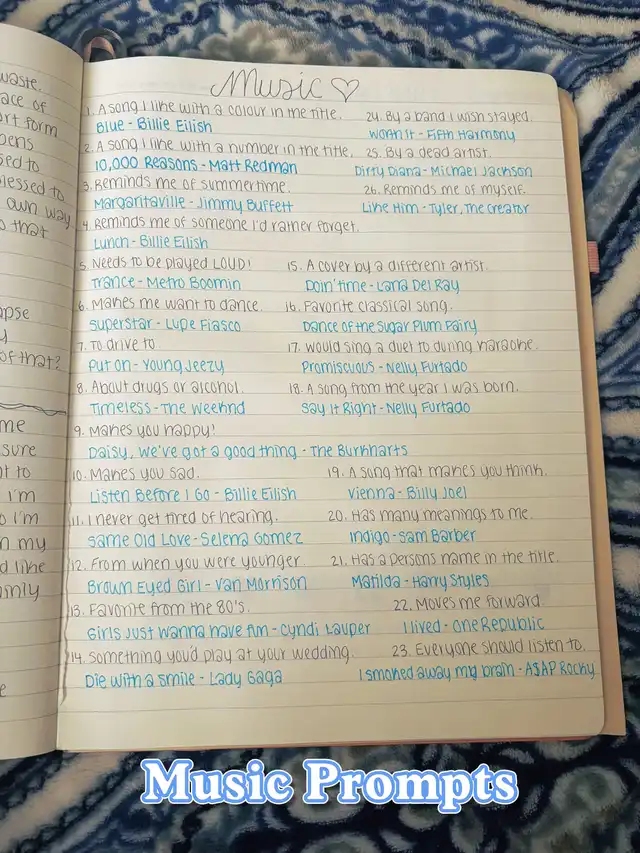 waste.
ace of
ort form
pens
sed to
lessed to
own way
o that
apse
y
of that?
me
sure
nt to
I'm
o I'm
n my
d like
amly
e
Music ♡
1. A song I like with a colour in the title.
Blue - Billie Eilish
2. A song I like with a number in the title.
10,000 Reasons - Matt Redman
3. Reminds me of summertime.
Margaritaville - Jimmy Buffett
4. Reminds me of someone I'd rather forget.
Lunch - Billie Eilish
24. By a band I wish stayed.
Worth It - Fifth Harmony
25. By a dead artist.
Dirty Diana - Michael Jackson
26. Reminds me of myself.
Like Him - Tyler, The Creator
5. Needs to be played LOUD!
Trance - Metro Boomin
6. Makes me want to dance.
Superstar - Lupe Fiasco
7. To drive to
Put On - Young Jeezy
8. About drugs or alcohol.
Timeless - The Weeknd
9. Makes you happy!
Daisy, we've got a good thing - The Burkharts
10. Makes you sad.
Listen Before I Go - Billie Eilish
11. I never get tired of hearing.
Same Old Love - Selena Gomez
12. From when you were younger.
Brown Eyed Girl - Van Morrison
13. Favorite from the 80's.
Girls Just Wanna Have Fun - Cyndi Lauper
14. Something you'd play at your wedding.
Die with a smile - Lady Gaga
15. A cover by a different artist.
Doin' time - Lana Del Ray
16. Favorite classical song.
Dance of the Sugar Plum Fairy
17. Would sing a duet to during karaoke.
Promiscuous - Nelly Furtado
18. A song from the year I was born.
Say It Right - Nelly Furtado
19. A song that makes you think.
Vienna - Billy Joel
20. Has many meanings to me.
Indigo - Sam Barber
21. Has a persons name in the title.
Matilda - Harry Styles
22. Moves me forward
I lived - One Republic
23. Everyone should listen to.
I smoked away my brain - A$AP Rocky
Music Prompts